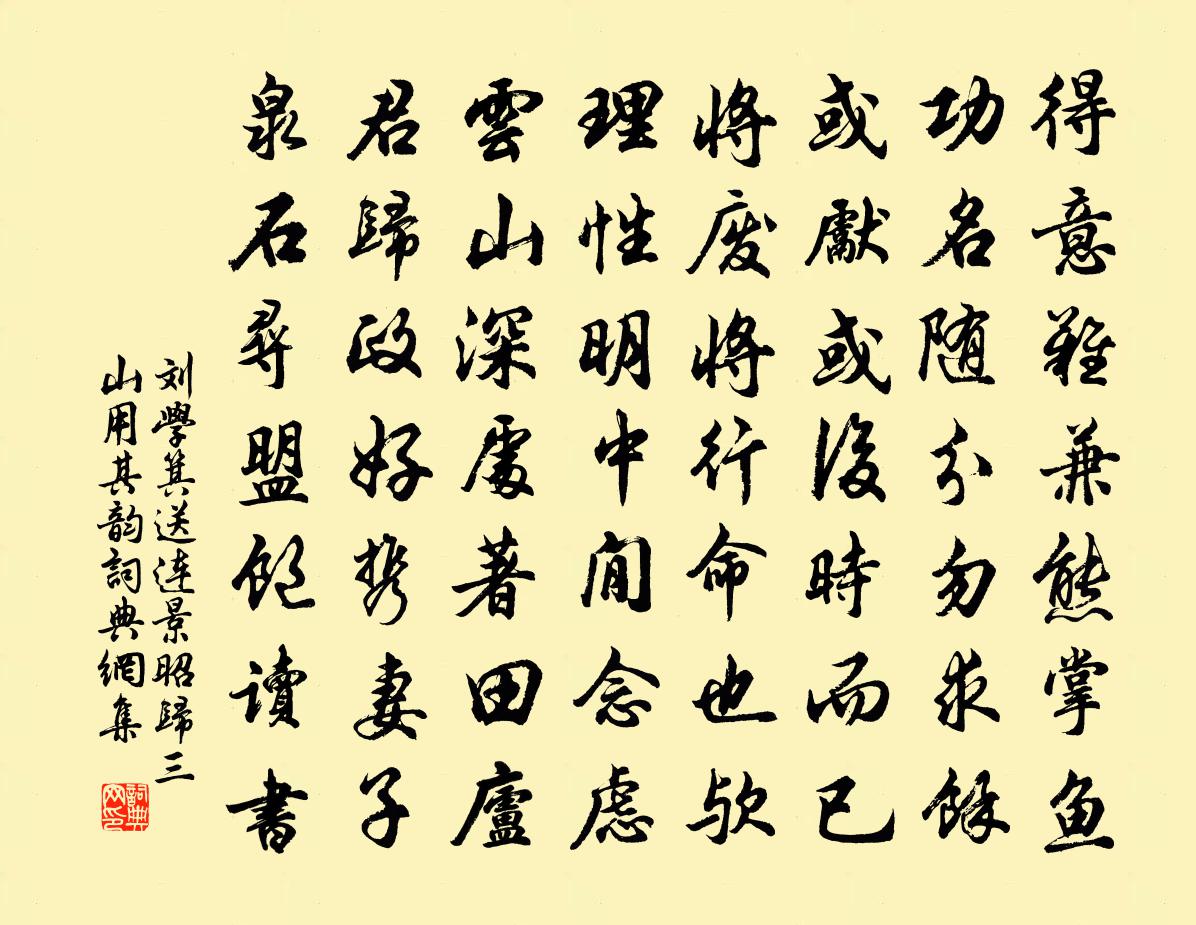 得意難兼熊掌鱼
功名随分勿求餘
或獻或後時而已
將废將行命也欤
理性明中闲念虑
雲山深處著田廬
君歸政好携妻子
泉石尋盟饱讀書
刘學箕送连景昭歸三
山用其韵詞典網集
詞典网印